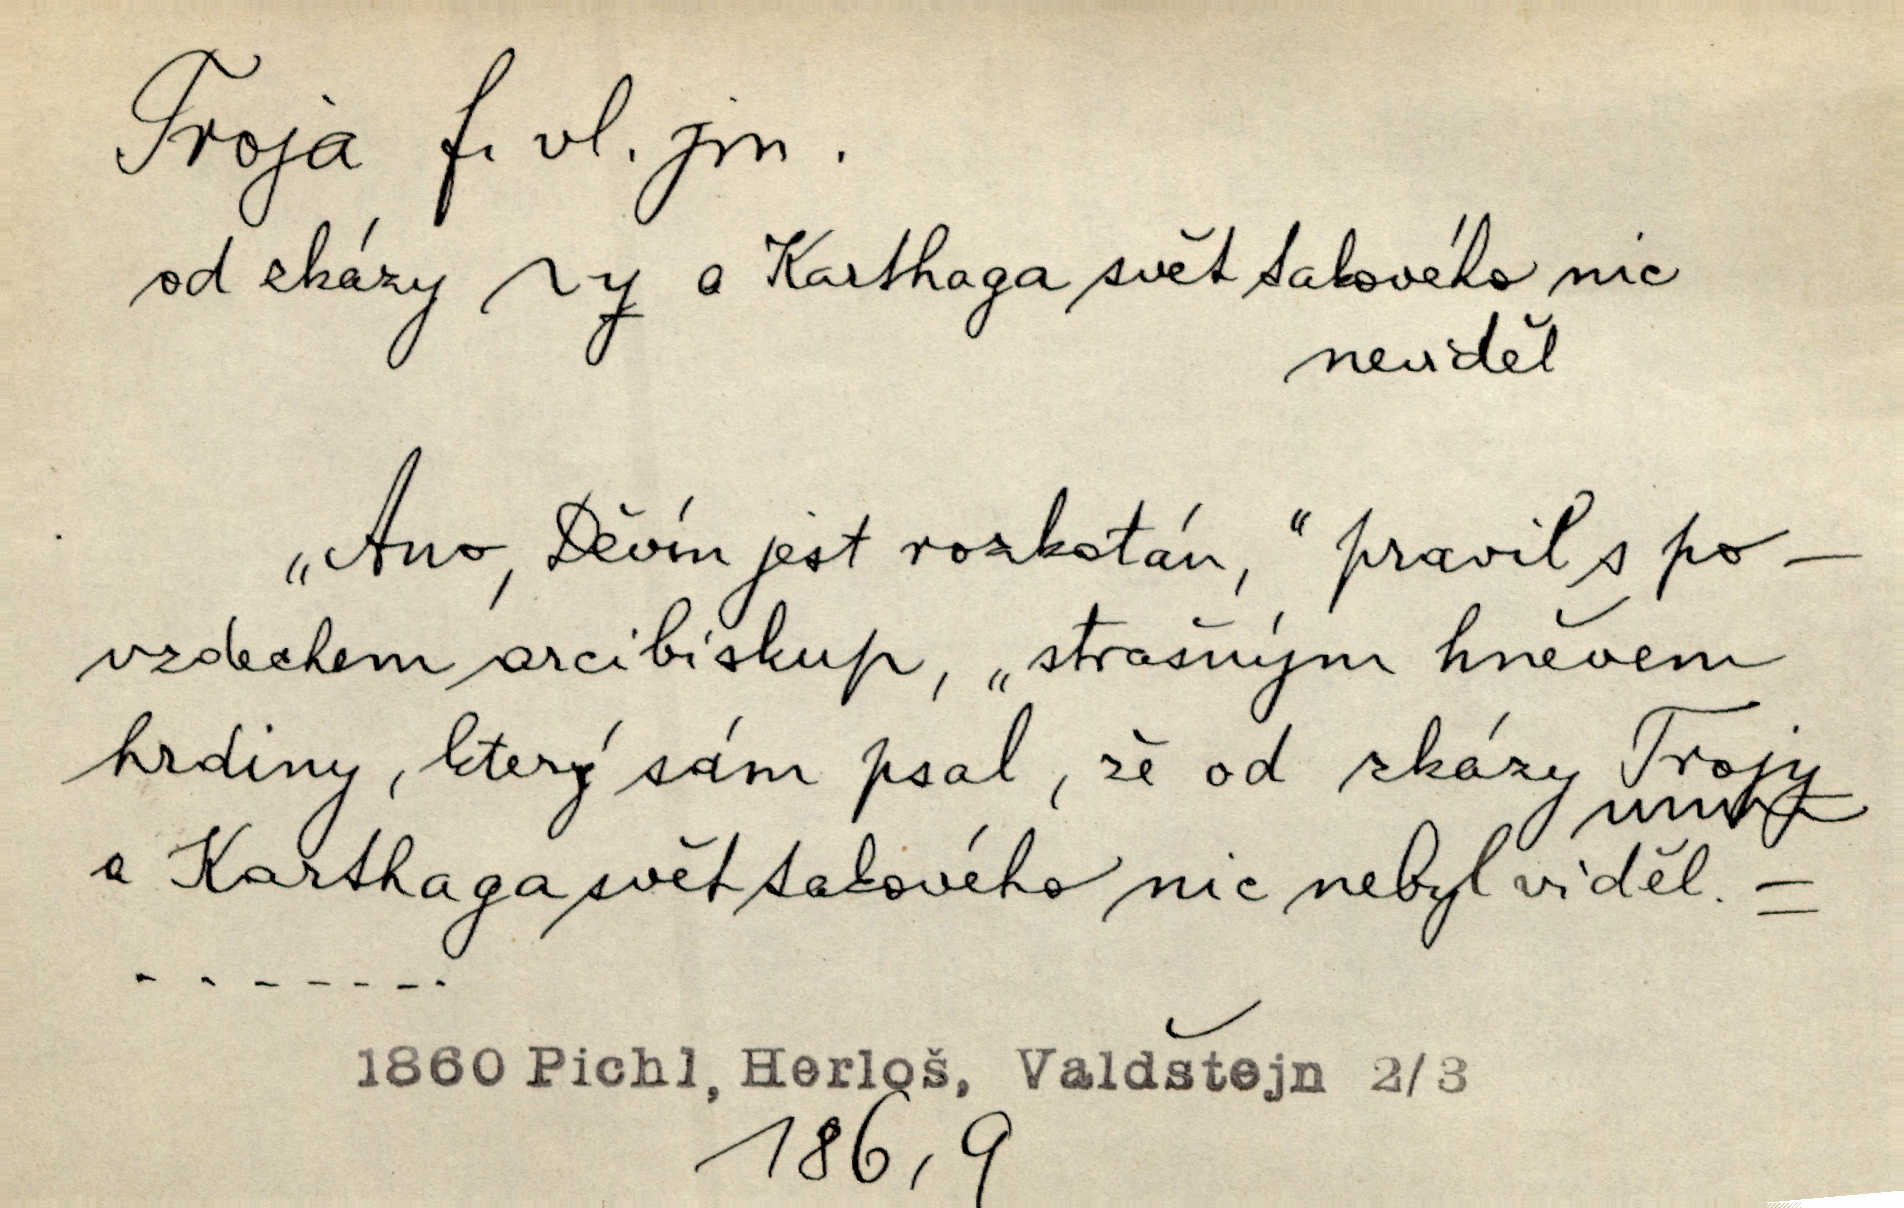 Troja f. vl. jm.
od zkázy ~y a Karthaga svět takového nic
neviděl
„Ano, Děvín jest rozkotán,“ pravil s po-
vzdechem arcibiskup, „strašným hněvem
hrdiny, který sám psal, že od zkázy Trojy
a Karthaga svět takového nic nebyl viděl. =
- - - - - - - .
1860 Pichl, Herloš, Valdštejn 2/3
186, 9